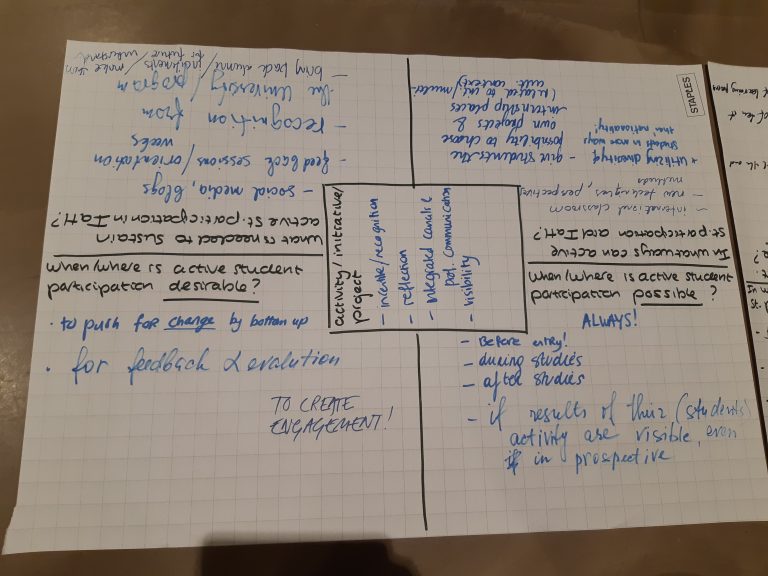 When/where is active student
participation desirable?
• to push for change by bottom up
• for feedback & evalution
TO CREATE
ENGAGEMENT!
When/where is active student
participation possible?
ALWAYS!
- Before entry!
- during studies
- after studies
- if results of their (students)
activity are visible, even
if in prospective
activity/initiative/
project
- incentive/recognition
- reflection
- integrated
- visibility
communication
What is needed to sustain
active st. participation in IatH?
- social media, blogs
- feed back sessions/orientation
weeks
- recognition from
the University/program
- bring back alumni/
In what ways can active
st. participation aid IatH?
- international classroom
- new techniques, perspectives,
methods
- give students the
possibility to choose
own projects &
internship places
(related to int/multi
cult. context)
+ Utilizing diversity of
students in more ways
than nationality!
STAPLES